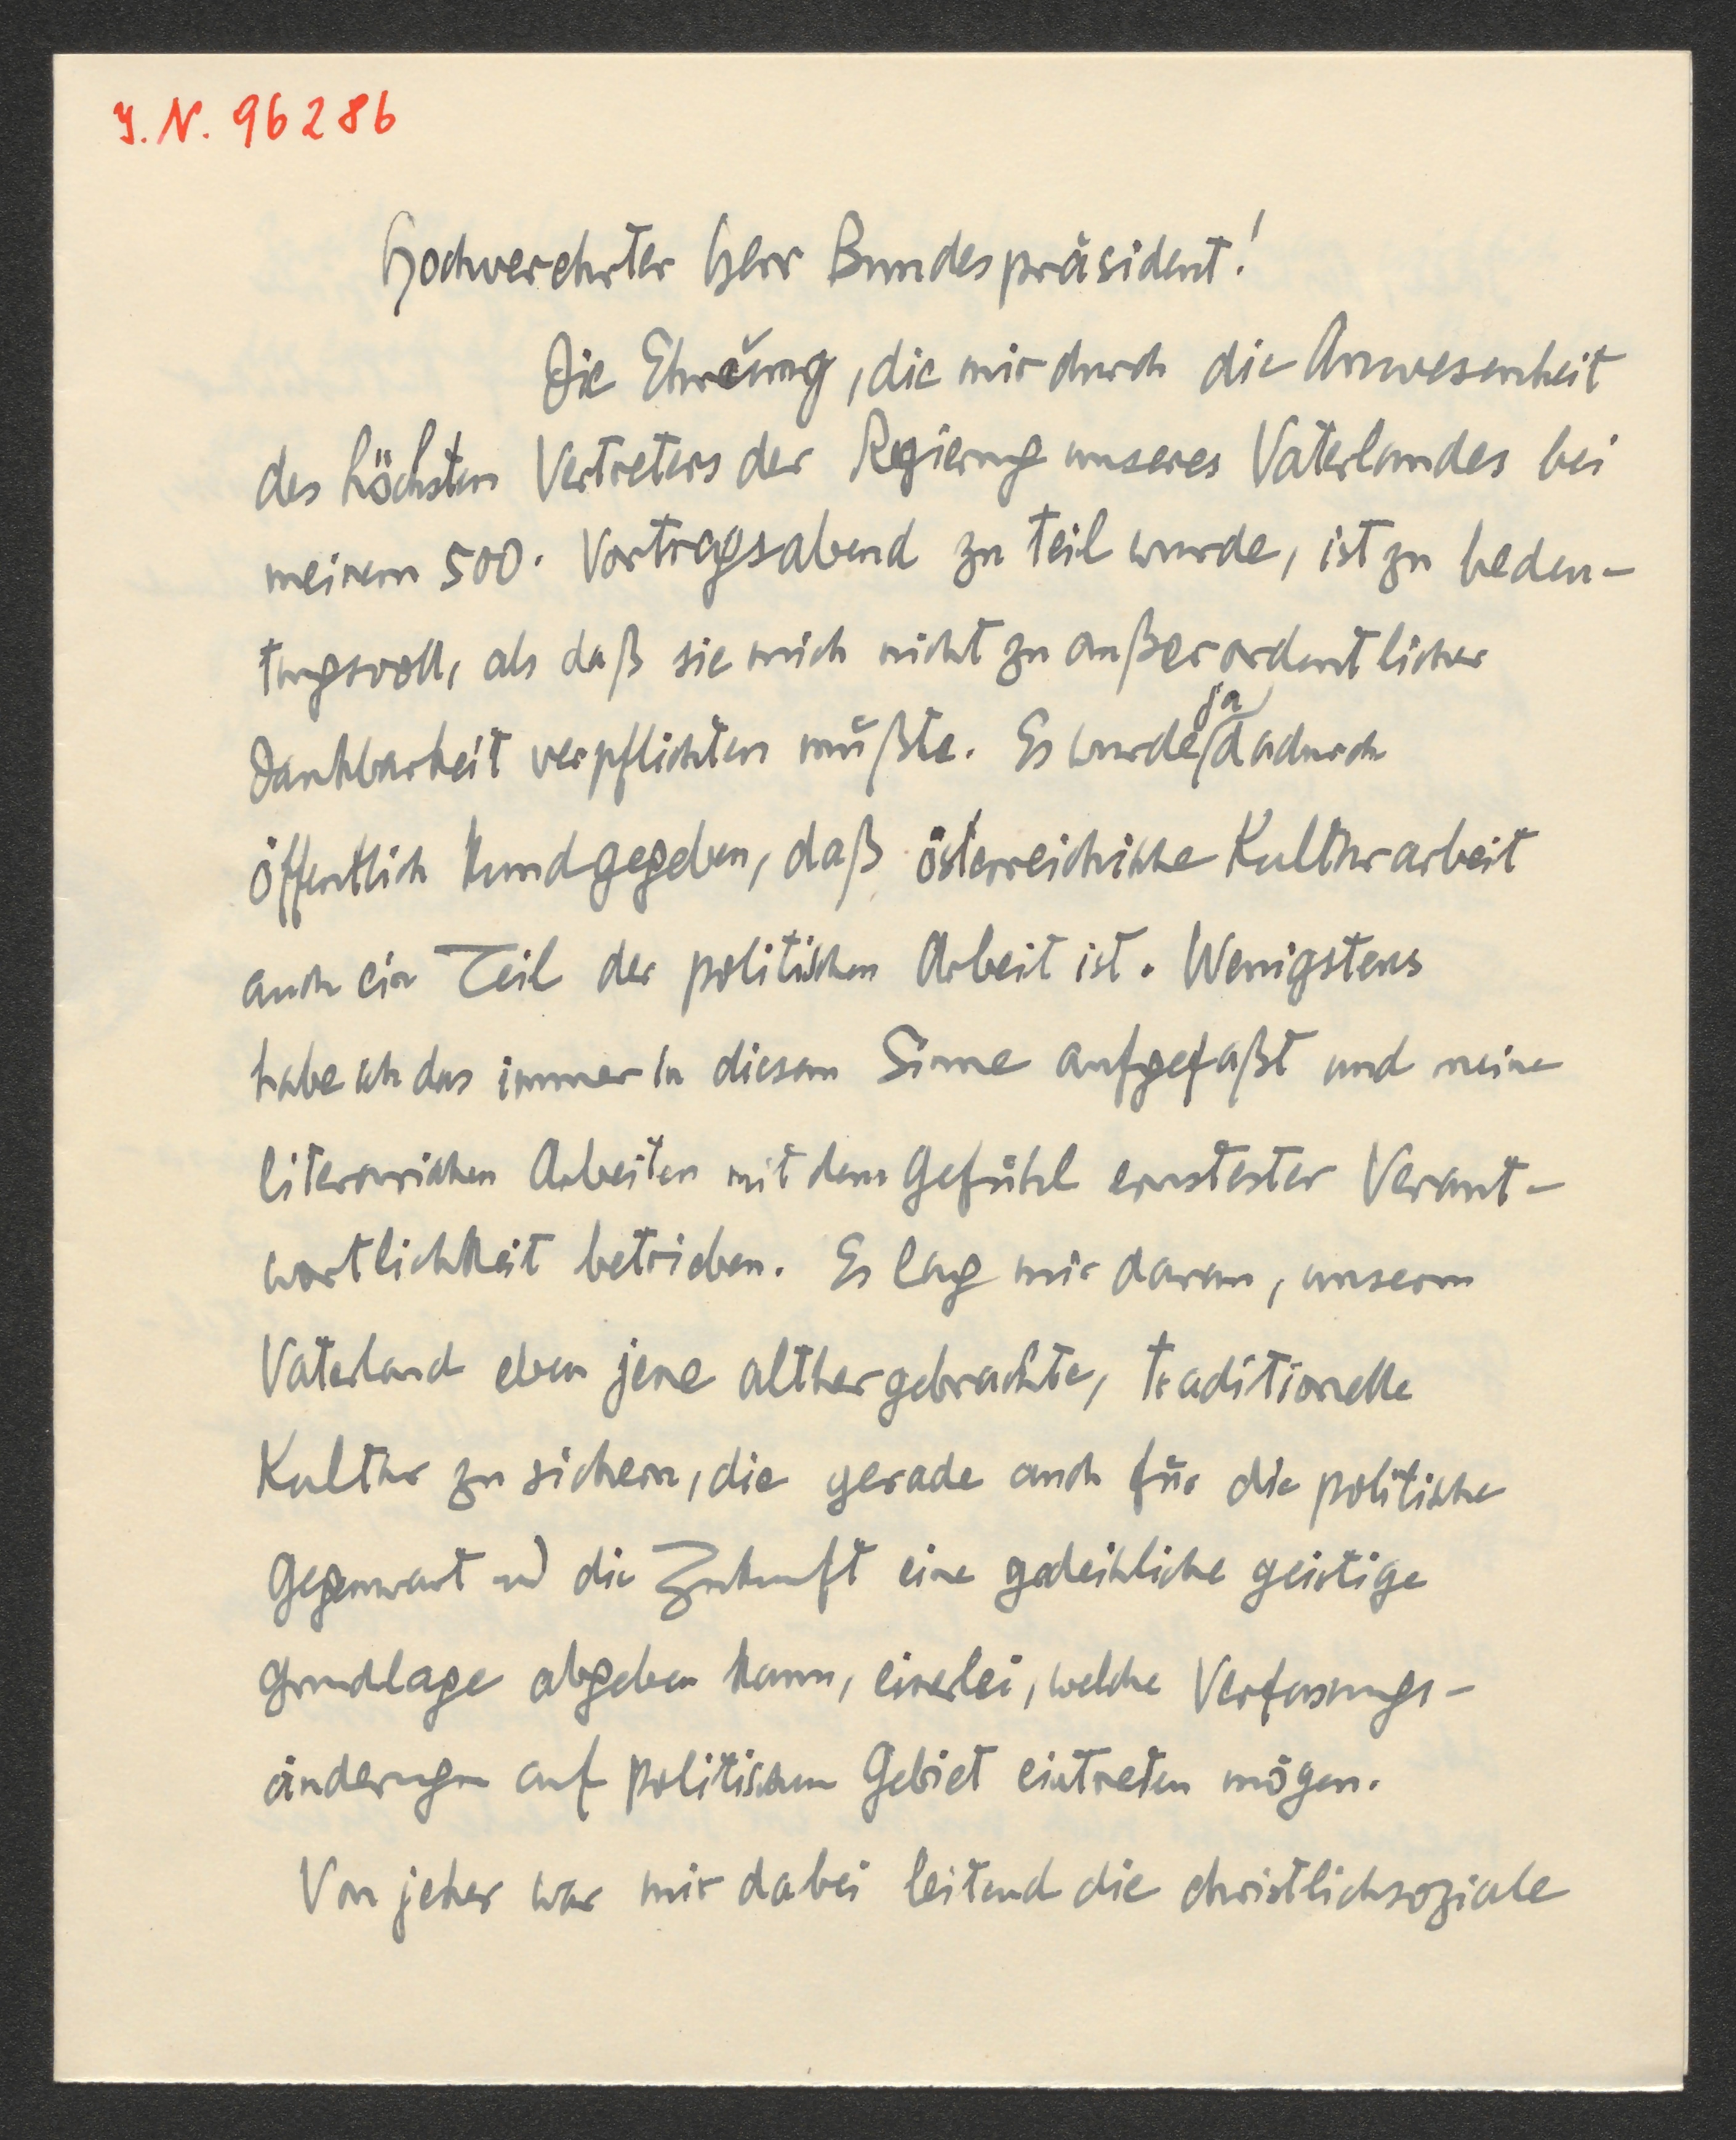 J. N. 96286
Hochverehrter Herr Bundespräsident!
Die Ehrung, die mir durch die Anwesenheit
des höchsten Vertreters der Regierung unseres Vaterlandes bei
meinem 500. Vortragsabend zu teil wurde, ist zu bedeu-
tungsvoll, als daß sie mich nicht zu außerordentlicher
Dankbarkeit verpflichten müßte. Es wurde ja dadurch
öffentlich kundgegeben, daß österreichische Kulturarbeit
auch ein Teil der politischen Arbeit ist. Wenigstens
habe ich das immer in diesem Sinne aufgefaßt und meine
literarischen Arbeiten mit dem Gefühl ernstester Verant-
wortlichkeit betrieben. Es lag mir daran, unserm
Vaterland eben jene althergebrachte, traditionelle
Kultur zu sichern, die gerade auch für die politische
Gegenwart und die Zukunft eine gedeihliche geistige
Grundlage abgeben kann, einerlei, welche Verfassungs-
änderungen auf politischem Gebiet eintreten mögen.
Von jeher war mir dabei leitend die christlichsoziale